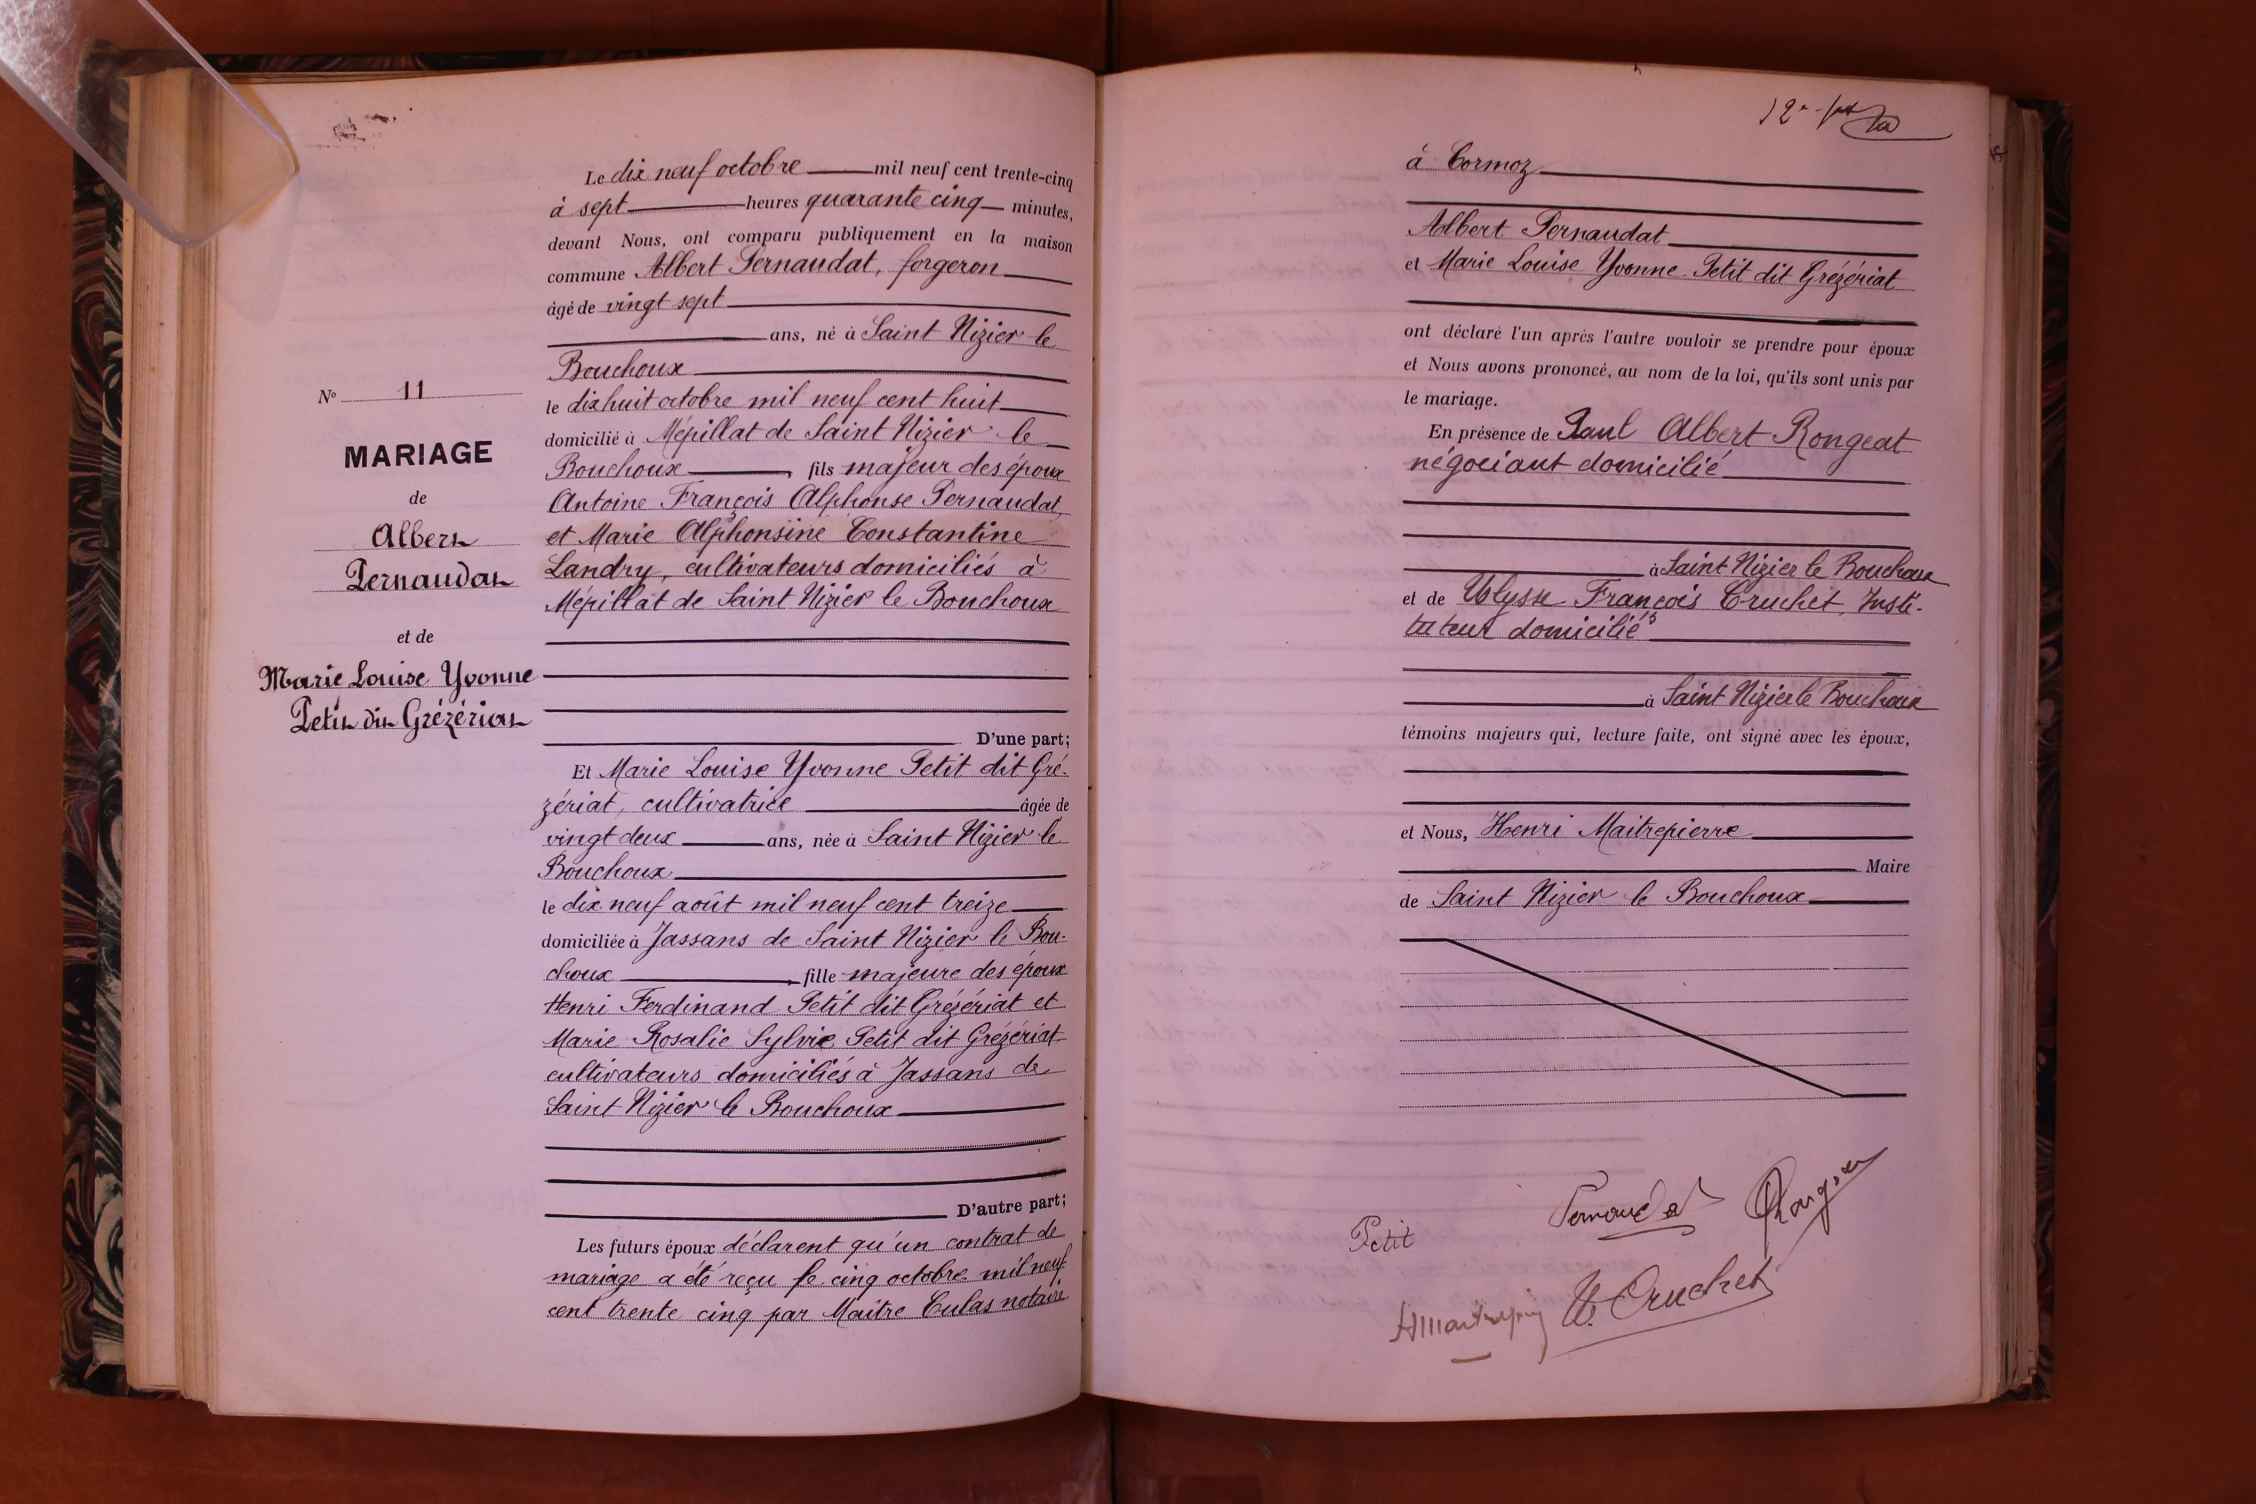 Le dix neuf octobre mil neuf cent trente-cinq
à sept heures quarante cinq minutes,
devant Nous, ont comparu publiquement en la maison
commune Albert Pernaudat, forgeron
âgé de vingt sept
ans, né à Saint Nizier le
Bouchoux
le dix huit octobre mil neuf cent huit
domicilié à Mépillat de Saint Nizier le
Bouchoux, fils majeur des époux
Antoine François Alphonse Pernaudat,
et Marie Alphonsine Constantine
Landry, cultivateurs domiciliés à
Mépillat de Saint Nizier le Bouchoux
D'une part;
Et Marie Louise Yvonne Petit dit Gré-
zériat, cultivatrice âgée de
vingt deux ans, née à Saint Nizier le
Bouchoux
le dix neuf août mil neuf cent treize
domiciliée à Jassans de Saint Nizier le Bou-
choux, fille majeure des époux
Henri Ferdinand Petit dit Grézériat et
Marie Rosalie Sylvie Petit dit Grézériat
cultivateurs domiciliés à Jassans de
Saint Nizier le Bouchoux
D'autre part;
Les futurs époux déclarent qu'un contrat de
mariage a été reçu le cinq octobre mil neuf
cent trente cinq par Maître Culas notaire
No 11
MARIAGE
de
Albert
Pernaudat
et de
Marie Louise Yvonne
Petit dit Grézériat
à Cormoz
Albert Pernaudat
et Marie Louise Yvonne Petit dit Grézériat
ont déclaré l'un après l'autre vouloir se prendre pour époux
et Nous avons prononcé, au nom de la loi, qu'ils sont unis par
le mariage.
En présence de Paul Albert Rongeat
négociant domicilié
à Saint Nizier le Bouchoux
et de Ulysse François Cruchet, Insti-
tuteur domicilié
à Saint Nizier le Bouchoux
témoins majeurs qui, lecture faite, ont signé avec les époux,
et Nous, Henri Maitrepierre
Maire
de Saint Nizier le Bouchoux
Pernaudat
Rongeat
Petit
U. Cruchet
HMaitrepierre